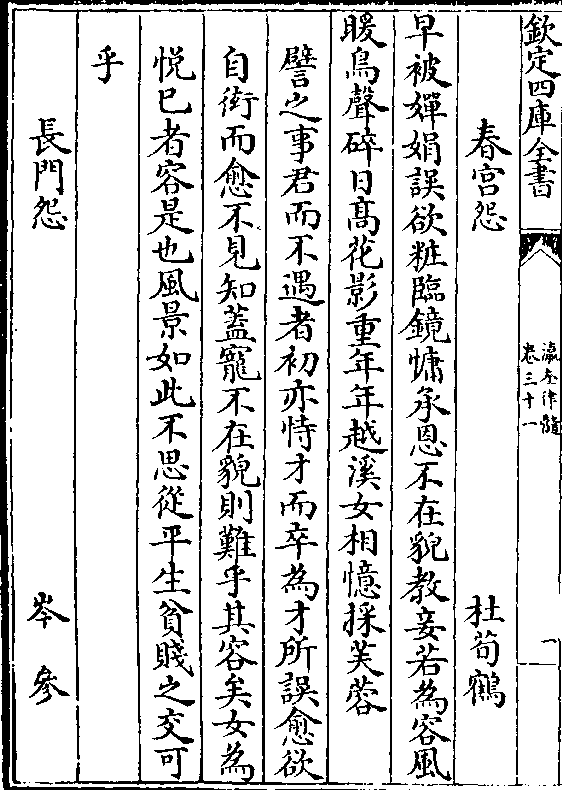 欽定四庫全書
瀛奎律髓
卷三十一
一
春宮怨 杜荀鶴
早被嬋娟誤欲粧臨鏡慵承恩不在貌教妾若為容風
暖鳥聲碎日髙花影重年年越溪女相憶採芙蓉
譬之事君而不遇者初亦恃才而卒為才所誤愈欲
自衒而愈不見知蓋寵不在貌則難乎其容矣女為
悦已者容是也風景如此不思從平生貧賤之交可
乎
長門怨 岑參